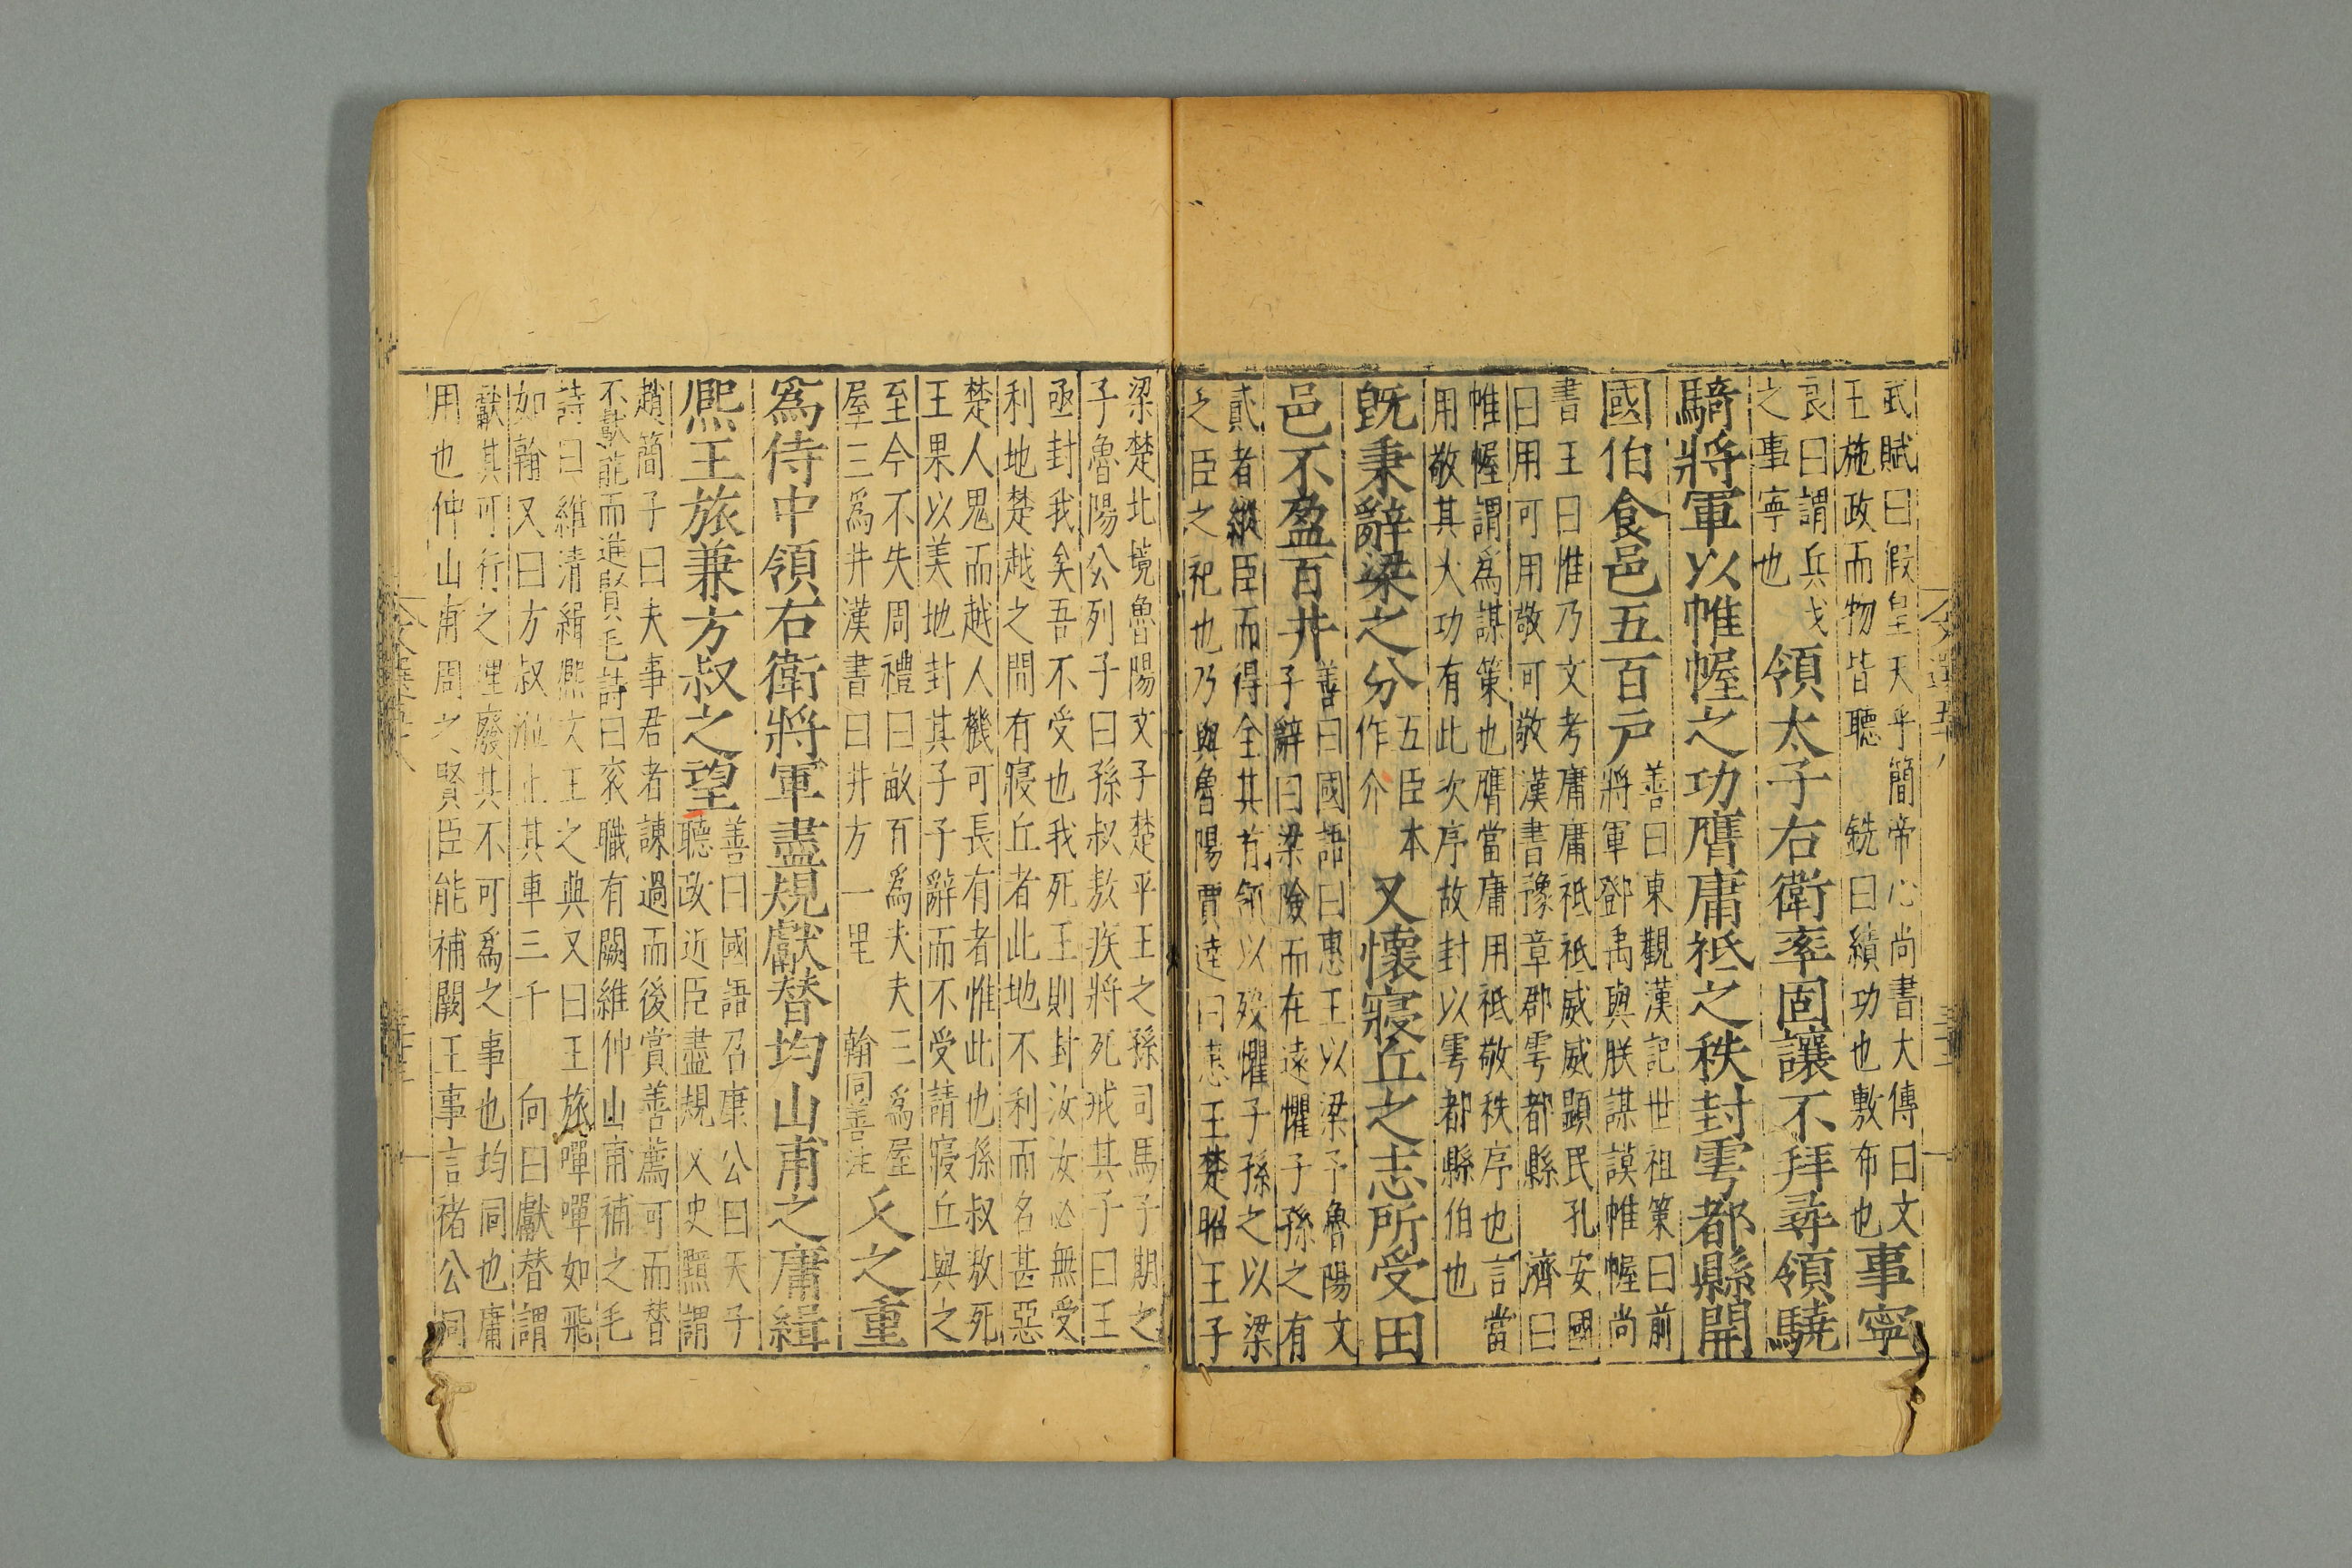 武賦曰假皇天乎簡帝心尚書大傳曰文
王施政而物皆聽　銑曰績功也敷布也事寧
哀曰謂兵戈
之事寧也
領太子右衛率固讓不拜尋領驍
騎將軍以帷幄之功膺庸祗之秩封雩都縣開
國伯食邑五百戶
善曰東觀漢記世祖策曰前
將軍鄧禹與朕謀謨帷幄尚
書王曰惟乃文考庸庸祗祗威威顯民孔安國
曰用可用敬可敬漢書豫章郡雩都縣　濟曰
帷幄謂爲謀策也膺當庸用祗敬秩序也言當
用敬其大功有此次序故封以雩都縣伯也
旣秉辭梁之分
五臣本
作介
又懷寢丘之志所受田
邑不盈百井
善曰國語曰惠王以梁予魯陽文
子辭曰梁險而在遠懼子孫之有
貳者縱臣而得全其首領以歿懼子孫之以梁
之臣之祀也乃與魯陽賈逵曰惠王楚昭王子
梁楚北境魯陽文子楚平王之孫司馬子期之
子魯陽公列子曰孫叔敖疾將死戒其子曰王
亟封我矣吾不受也我死王則封汝汝必無受
利地楚越之間有寢丘者此地不利而名甚惡
楚人鬼而越人機可長有者惟此也孫叔敖死
王果以美地封其子子辭而不受請寢丘與之
至今不失周禮曰畝百爲夫夫三爲屋
屋三爲井漢書曰井方一里　翰同善注
久之重
爲侍中領右衛將軍盡規獻替均山甫之庸緝
熈王旅兼方叔之望
善曰國語召康公曰天子
聽政近臣盡規又史黯謂
趙簡子曰夫事君者諫過而後賞善薦可而替
不獻能而進賢毛詩曰衮職有闕維仲山甫補之毛
詩曰維清緝熈文王之典又曰王旅嘽嘽如飛
如翰又曰方叔涖止其車三千　向曰獻替謂
獻其可行之理廢其不可爲之事也均同也庸
用也仲山甫周之賢臣能補闕王事言褚公同